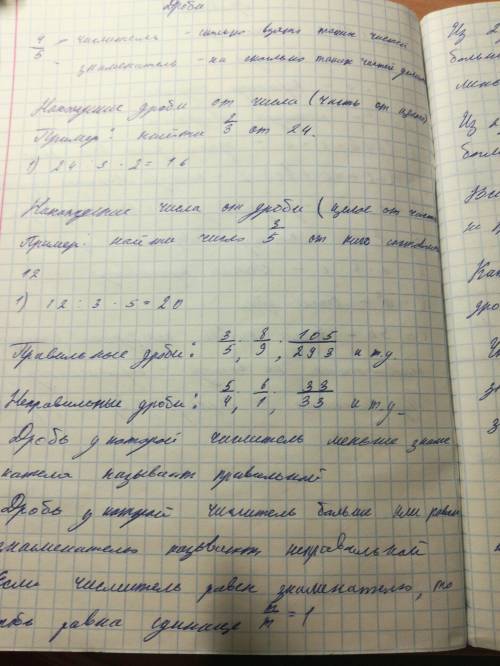 Дроби
4/5 - числитель - сколько взято таких частей
- знаменатель - на сколько таких частей
Нахождение дроби от числа (часть от целого)
Пример: найти 2/3 от 24.
1) 24 : 3 · 2 = 16
Нахождение числа от дроби (целое от части
Пример: найти число 3/5 от кого
12
1) 12 : 3 · 5 = 20
Правильные дроби: 3/5; 8/9; 105/293 и т.д.
Неправильные дроби: 5/4; 6/1; 33/33 и т.д.
Дробь у которой числитель меньше знаме
нателя называют правильной
Дробь у которой числитель больше или равен
знаменателю называют неправильной
Если числитель равен знаменателю, то
обь равна единице = 1
Из 2
больш
мень
Из 2
больш
Как
дро
з
з